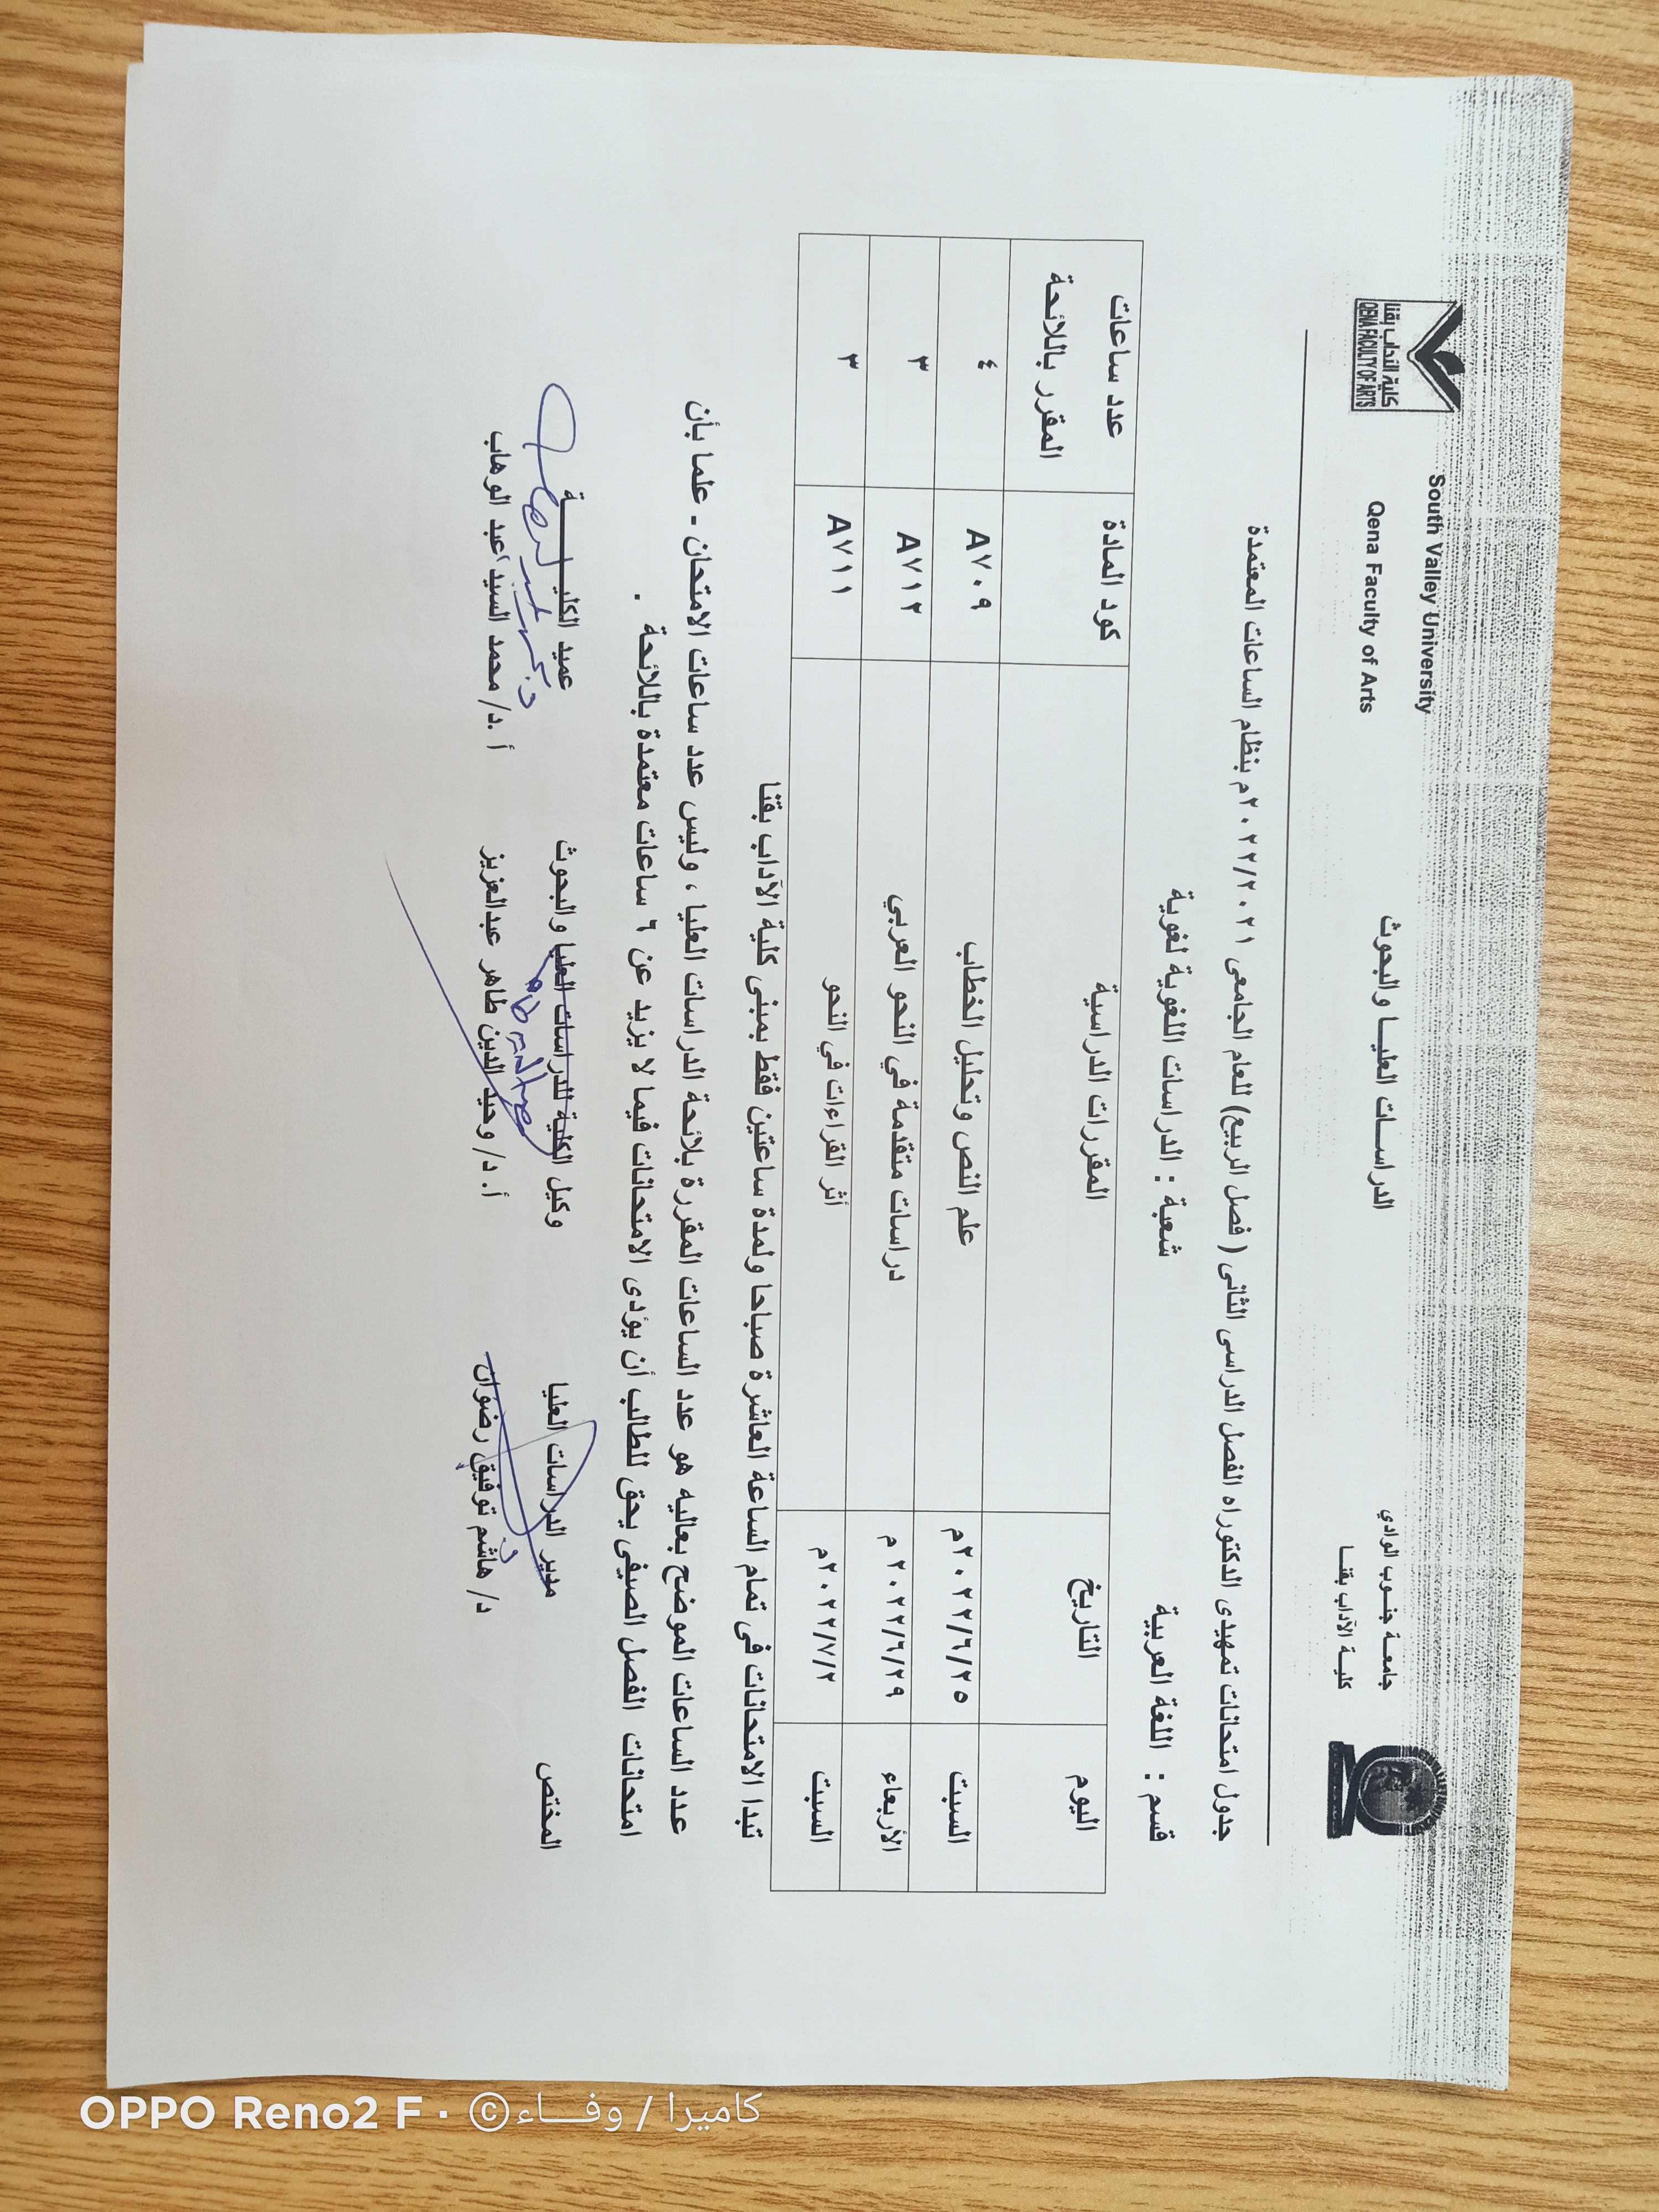 South Valley University
Qena Faculty of Arts
كلية الآداب بقنا
QENA FACULTY OF ARTS
الدراسات العليا والبحوث
جامعة جنوب الوادي
كلية الآداب بقنا
جدول امتحانات تمهيدى الدكتوراه الفصل الدراسى الثانى ( فصل الربيع) للعام الجامعى ٢٠٢٢/٢٠٢١م بنظام الساعات المعتمدة
قسم : اللغة العربية شعبة : الدراسات اللغوية لغوية
اليوم التاريخ المقررات الدراسية كود المادة عدد ساعات المقرر باللائحة
السبت ٢٠٢٢/٦/٢٥م علم النص وتحليل الخطاب A٧٠٩ ٤
الأربعاء ٢٠٢٢/٦/٢٩ م دراسات متقدمة في النحو العربي A٧١٢ ٣
السبت ٢٠٢٢/٧/٢م أثر القراءات في النحو A٧١١ ٣
تبدا الامتحانات فى تمام الساعة العاشرة صباحا ولمدة ساعتين فقط بمبنى كلية الآداب بقنا
عدد الساعات الموضح بعاليه هو عدد الساعات المقررة بلائحة الدراسات العليا ، وليس عدد ساعات الامتحان - علما بأن
امتحانات الفصل الصيفى يحق للطالب أن يؤدى الامتحانات فيما لا يزيد عن ٦ ساعات معتمدة باللائحة .
المختص مدير الدراسات العليا وكيل الكلية للدراسات العليا والبحوث عميد الكلية
د/ هاشم توفيق رضوان أ.د/ وحيد الدين طاهر عبدالعزيز أ.د/ محمد السيد عبد الوهاب
OPPO Reno2 F · © كاميرا / وفاء